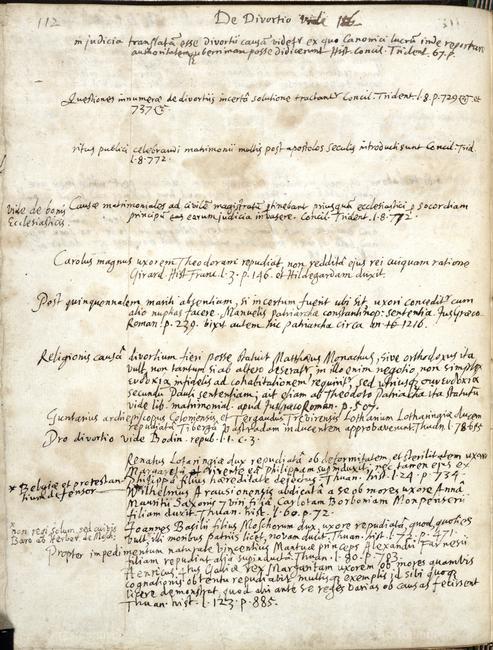 112
De Divortio vide 116
in judicia translatam esse divortii causam videtur ex quo Canonici lucrum inde reportari
authoritatemque firmari posse didicerunt Hist. Concil. Trident. 67. p.
Quæstiones innumeræ de divortiis incerta solutione tractantur Concil. Trident. l. 8. p. 729 et
737
ritus publici celebrandi matrimonii multis post apostolos seculis introducti sunt Concil. Trid.
l. 8. 772.
vide de bonis
Ecclesiasticis.
Causæ matrimoniales ad civilem magistratum pertinebant priusquam ecclesiastici p socordiam
principum eas earum judicia invasere. Concil. Trident. l. 8. 772.
Carolus magnus uxorem Theodoram repudiat non reddita ejus rei cuiquam ratione
Girard. Hist. Franc. l. 3. p. 146. et Hildegardam duxit.
Post quinquennalem mariti absentiam, si incertum fuerit ubi sit, uxori conceditur cum
alio nuptias facere. Manuelis patriarchæ constantinop. sententia. Jus Græco
Roman. p. 239. vixit autem hic patriarcha circa an 1216.
Religionis causa divortium fieri posse statuit Matthæus Monachus, sive orthodoxus ita
vult, non tantum si ab altero deseratur, in illo enim negotio, non simplex
εὐδοκία infidelis ad cohabitationem requiritur, sed utriusque συνευδοκία
secundum Pauli sententiam, ait etiam ab Theodoto Patriarcha ita statutum
vide lib. matrimonial. apud Jus Græco Roman. p. 507.
Guntarius archiepiscopus Coloniensis et Tergaudus Trevirensis Lotharium Lotharingiæ ducem
repudiata Tiberga Baldradam inducentem approbaverunt. Thuan. l. 78
Pro divortio vide Bodin. repub. l. 1. c. 3.
Renatus Lotaringiæ dux repudiata ob deformitatem, et sterilitatem uxore
Margareta et vivente ea Philippam superinduxit, nec tamen ejus ex
Philippa filius hæreditate dejectus. Thuan. hist. l. 24. p. 734.
* Belgiæ et protestantium
defensor
Wilhelmus Arausionensis abdicata a se ob mores uxore Anna
Mauritii Saxonis 7 viri filia Carlotam Borboniam Monpenserii
filiam duxit. Thuan. hist. l. 60. p. 72.
*
non rex solum, sed cuivis
Baro ab Herber. de Mosch:
Joannes Basilii filius Moschorum dux, uxore repudiata, quod, quoties
vult, illi moribus patriis licet, novam ducit. Thuan. hist. l. 72. p. 471.
Propter impedimentum naturale Vincentius Mantuæ princeps Alexandri Farnesii
filiam repudiat alia superinducta. Thuan. l. 80. p. 783.
Henricus 4tus Galliæ rex Margaritam uxorem ob mores quamvis
cognationis obtentu repudiavit, multisque exemplis id sibi quoque
licere demonstrat, quod alii ante se reges varias ob causas fecissent
Thuan. hist. l. 123. p. 885.